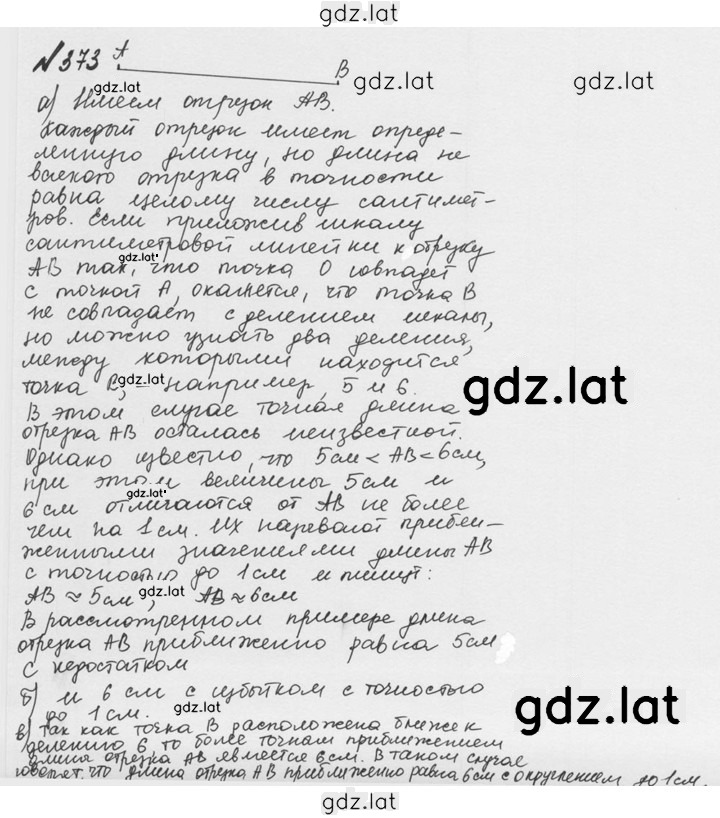 gdz.lat
№373 A B
gdz.lat gdz.lat
а) Имеем отрезок AB.
Каждый отрезок имеет опреде-
ленную длину, но длина не
всякого отрезка в точности
равна целому числу сантимет-
ров. Если приложив шкалу
сантиметровой линейки к отрезку
gdz.lat
AB так, что точка 0 совпадет
с точкой A, окажется, что точка B
не совпадает с делением шкалы,
но можно узнать два деления,
между которыми находится
точка B, например, 5 и 6.
gdz.lat gdz.lat
В этом случае точная длина
отрезка AB осталась неизвестной.
Однако известно, что 5см < AB < 6см,
при этом величины 5см и
gdz.lat
6 см отличаются от AB не более
чем на 1см. Их называют прибли-
женными значениями длины AB
с точностью до 1см и пишут:
AB ≈ 5см, AB ≈ 6см
gdz.lat
В рассмотренном примере длина
отрезка AB приближенно равна 5см
с недостатком
б) и 6 см с избытком с точностью
до 1см.
gdz.lat gdz.lat
в) Так как точка B расположена ближе к
делению 6 то более точным приближением
длины отрезка AB является 6см. В таком случае
говорят, что длина отрезка AB приближенно равна 6см с округлением до 1см.
gdz.lat